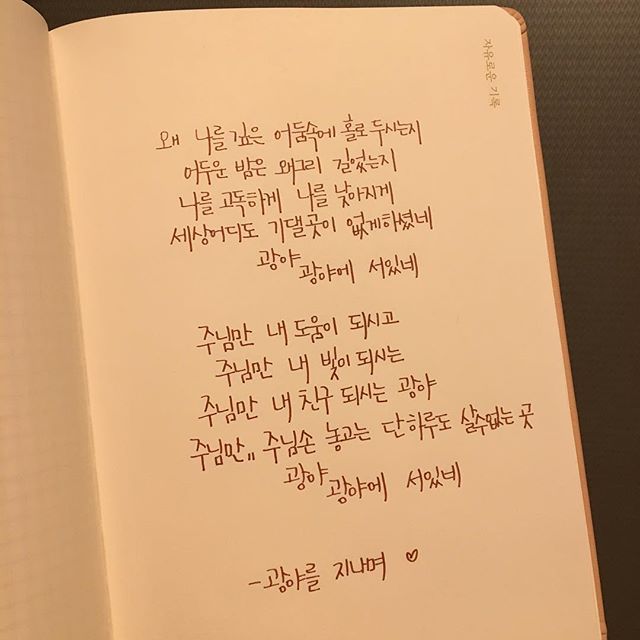 자유로운 기록
왜 나를 깊은 어둠속에 홀로 두시는지
어두운 밤은 왜그리 길었는지
나를 고독하게 나를 낮아지게
세상어디도 기댈곳이 없게하셨네
광야
광야에 서있네
주님만 내 도움이 되시고
주님만 내 빛이 되시는
주님만 내 친구 되시는 광야
주님만,, 주님손 놓고는 단 하루도 살수없는 곳
광야
광야에 서있네
-광야를 지내며 ♡